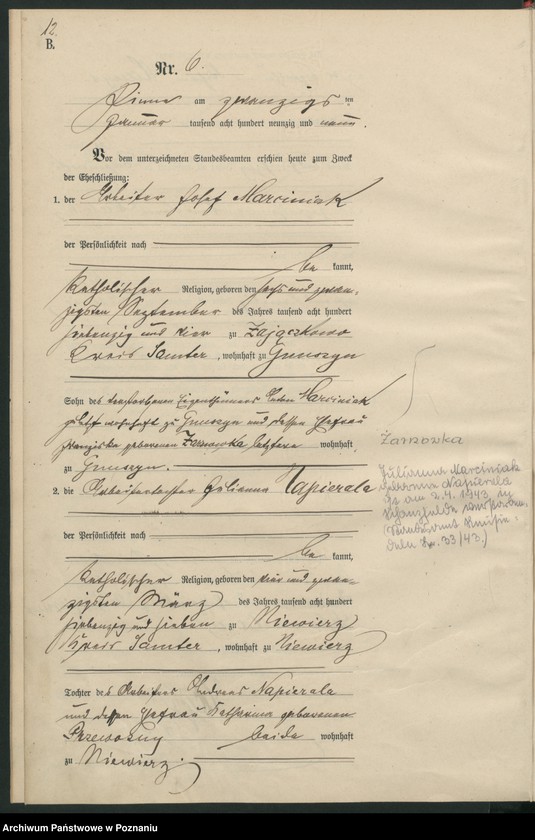 12.
B.
Nr. 6.
Pinne am zwanzigs ten
Januar tausend acht hundert neunzig und neun.
Vor dem unterzeichneten Standesbeamten erschien heute zum Zweck
der Eheschließung:
1. der Arbeiter Josef Marciniak
der Persönlichkeit nach
be kannt,
katholischer Religion, geboren den sechs und zwan-
zigsten September des Jahres tausend acht hundert
siebenzig und vier zu Zajączkowo
Kreis Samter, wohnhaft zu
Sohn des verstorbenen Eigenthümers Marciniak
zuletzt wohnhaft zu und dessen Ehefrau
Franziska geborenen Zarnowka letztere wohnhaft
zu
2. die Arbeitertochter Julianna Napierala
der Persönlichkeit nach
be kannt,
katholischer Religion, geboren den vier und zwan-
zigsten März des Jahres tausend acht hundert
siebenzig und sieben zu Niewierz
Kreis Samter, wohnhaft zu Niewierz
Tochter des Arbeiters Andreas Napierala
und dessen Ehefrau Katharina geborenen
Przewozny beide wohnhaft
zu Niewierz.
Żarnowka
Julianna Marciniak
geborene Napierala
ist am 2.4.1943 in
verstorben.
(Standesamt
Nr. 33/43.)
Archiwum Państwowe w Poznaniu